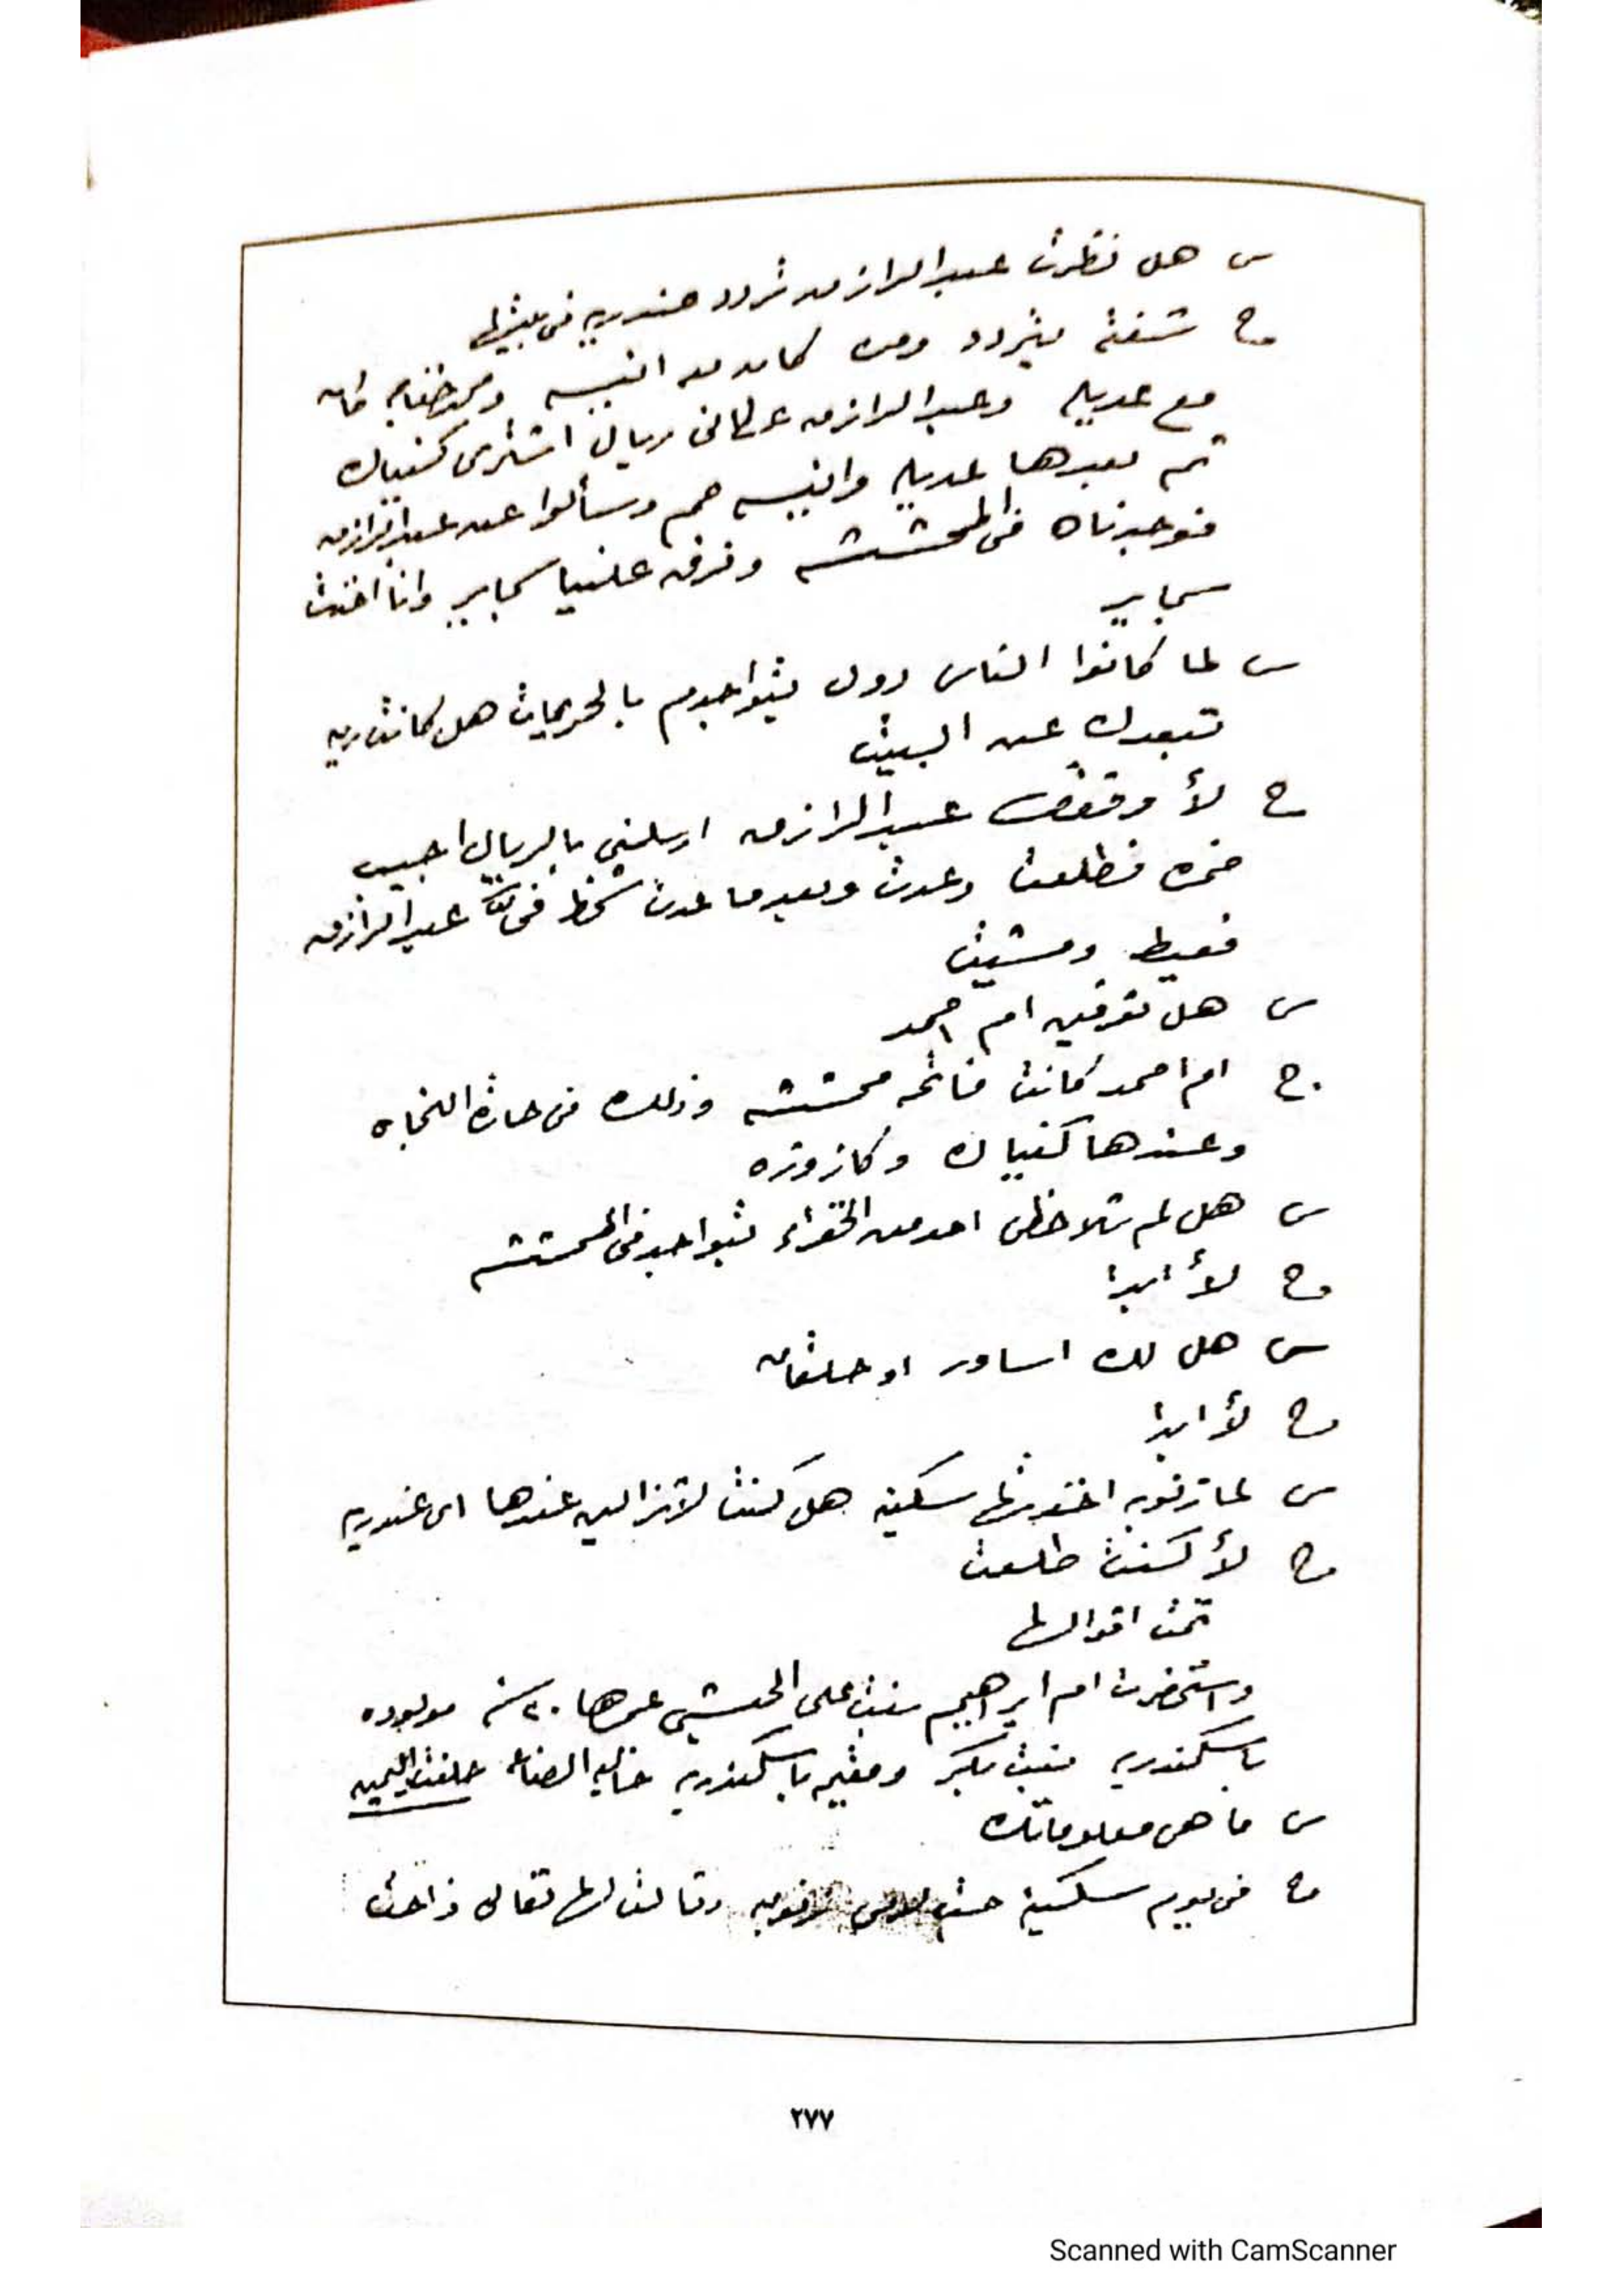 س هل نظرت عبد الرازق تردد عند ريه فى بيتها
ج شفته يتردد ومره كان مع انيسه ومحمد خفاجه كان
مع عديله وعبد الرازق عطانى ريال اشترى كنياك
ثم بعدها عديله وانيسه هم وسألوا عن عبد الرازق
فوجدناه فى المحششه وفرق علينا سجاير وانا اخذت
سجاير
س لما كانوا الناس دول يتواجدم بالحريمات هل كانت ريه
تبعدك عن البيت
ج لأ وقتها عبد الرازق ارسلنى بالريال اجيب
خمره فطلعت وعدت وبعد ما عدت شخط فى عبد الرازق
فعيط ومشيت
س هل تعرفين ام احمد
ج ام احمد كانت فاتحه محششه وذلك فى حارة النجاه
وعندها كنياك وكازوزه
س هل لم تلاحظى احد من الخفراء يتواجد فى المحششه
ج لأ ابدا
س هل لك اساور او حلقان
ج لأ ابدا
س لما زنوبه اخذتها سكينة هل كنت لا تزالين عندها اى عند ريه
ج لأ كنت طلعت
تمت اقوالها
واستحضرت ام ابراهيم بنت على الحبشى عمرها ٢٠ سنه مولوده
باسكندريه بنت بكر ومقيمه باسكندريه خاليه الصناعه حلفت اليمين
س ما هى معلوماتك
ج فى يوم سكينة وقالت لها تعالى
٢٧٧
Scanned with CamScanner